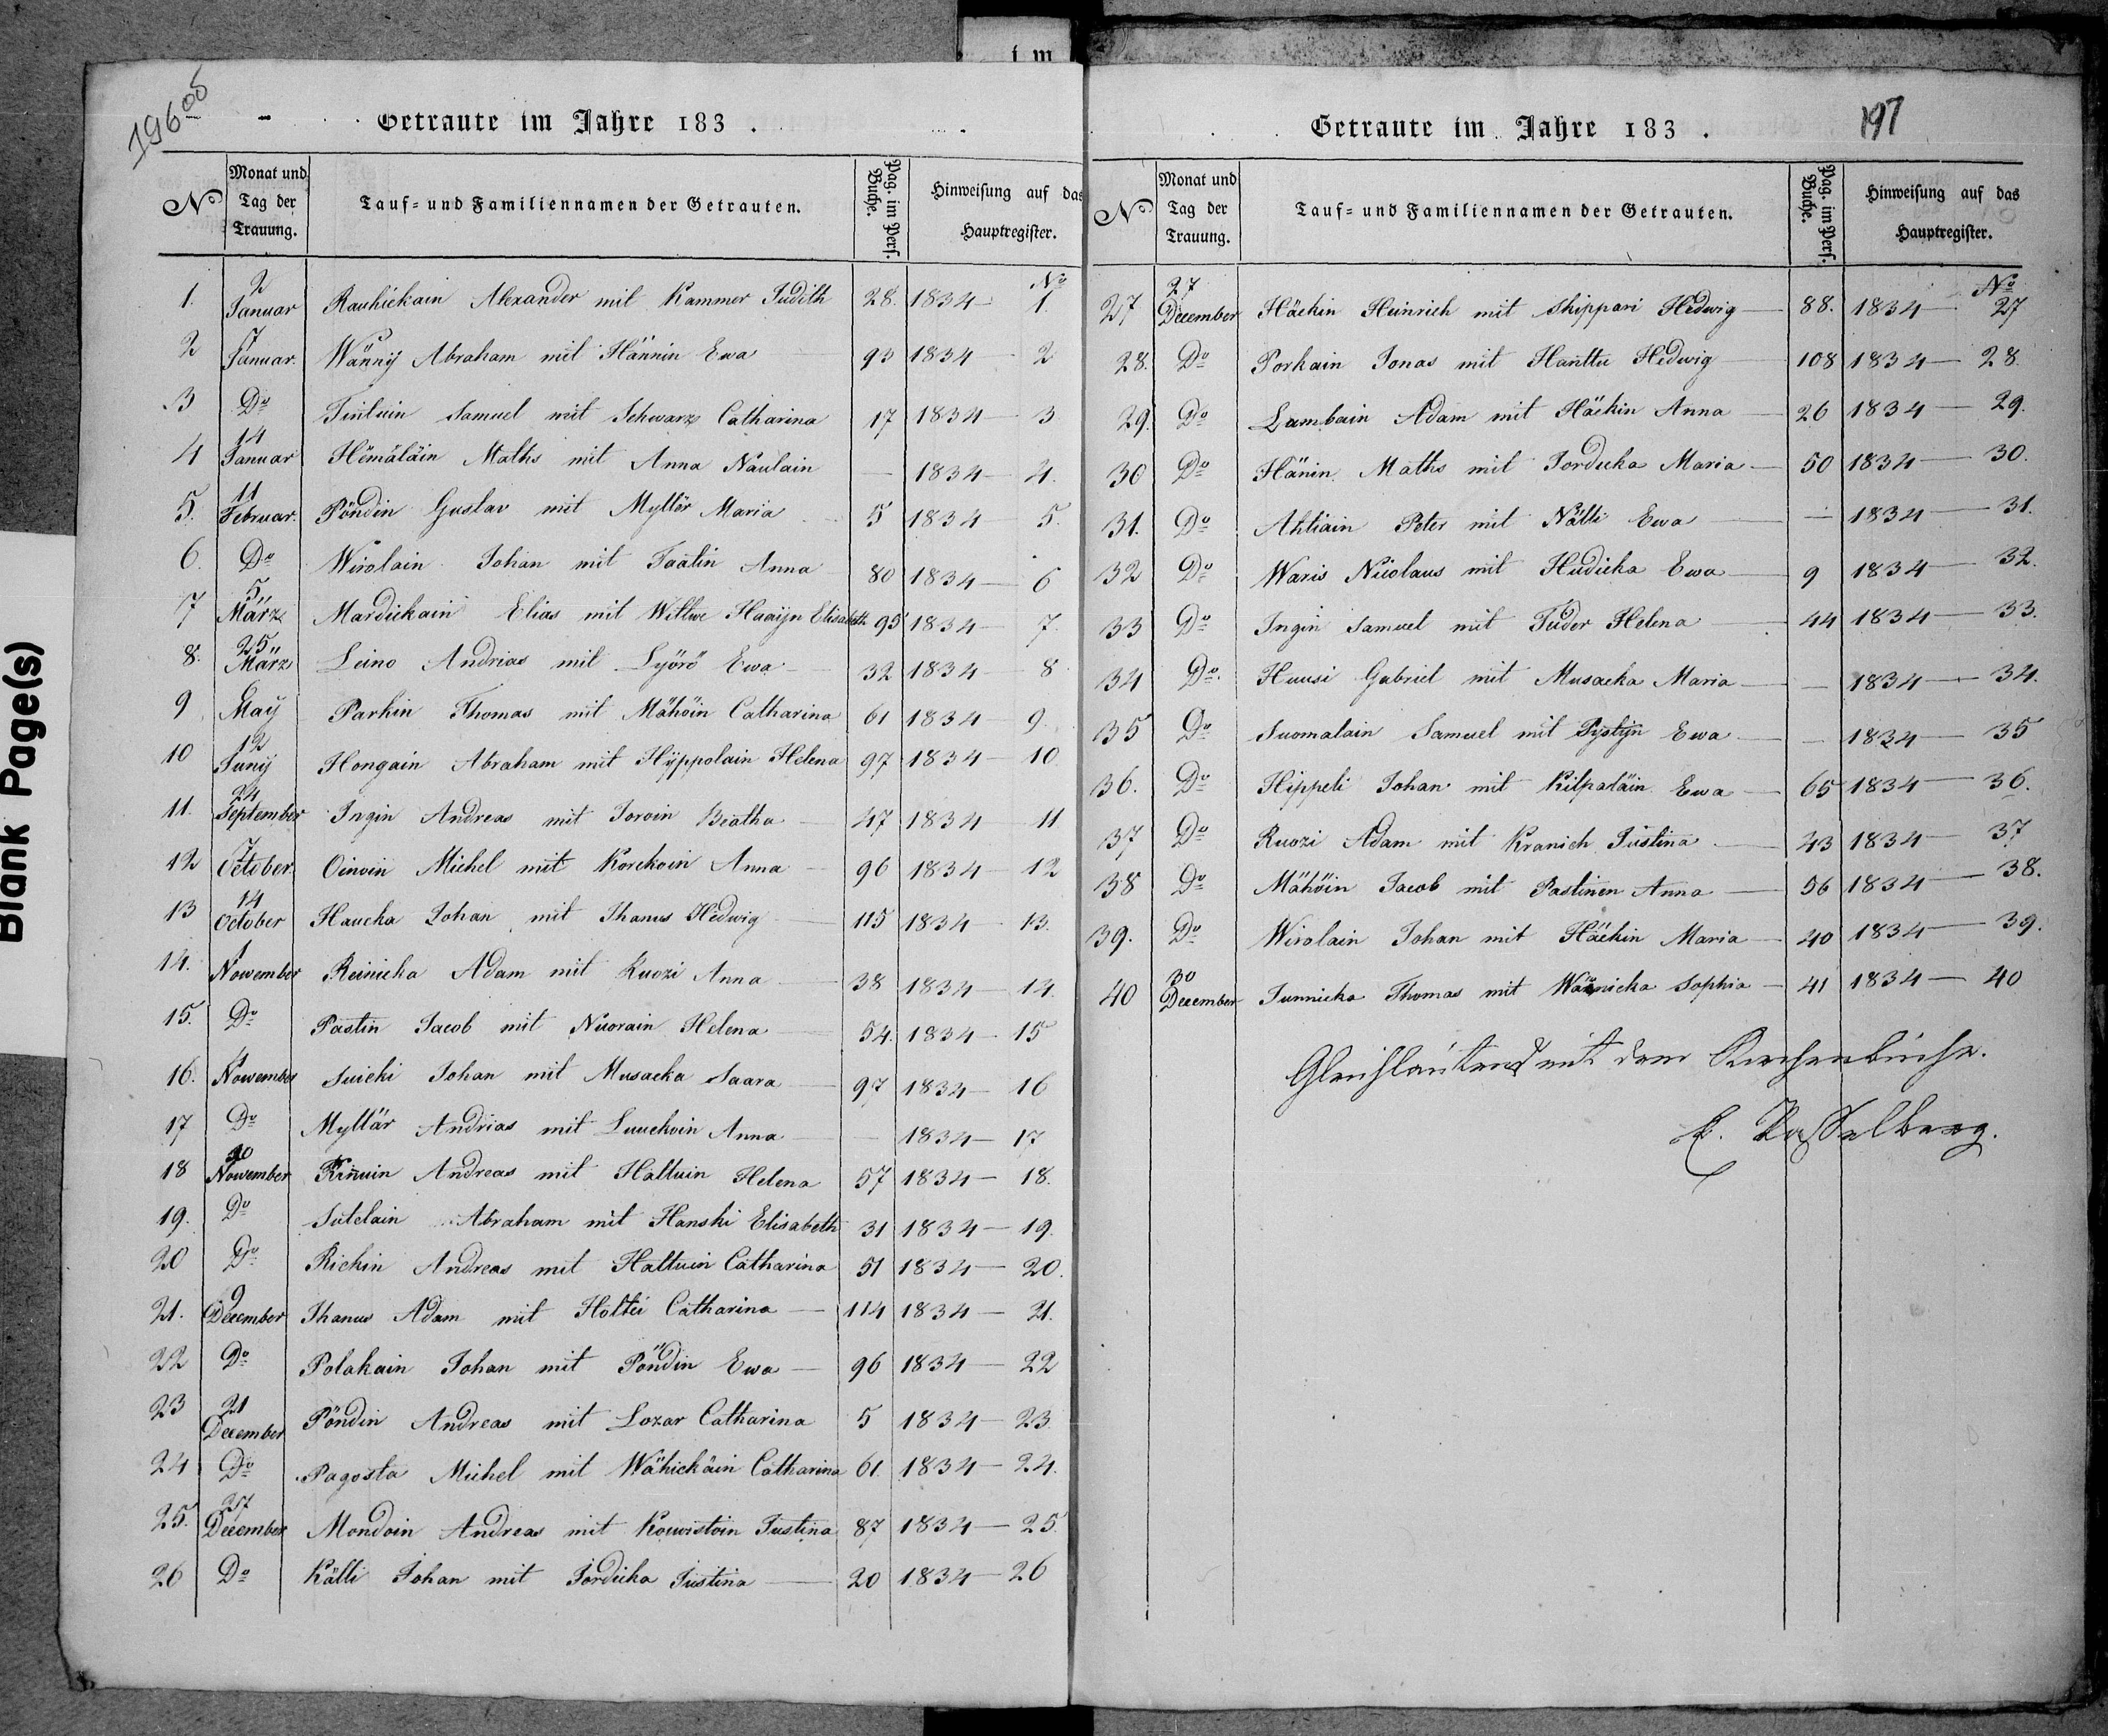 Blank Page(s)
im
196 ob
Getraute im Jahre 183 .
No
Monat und Tag der Trauung.
Tauf- und Familiennamen der Getrauten.
Pag. im Pers. Buche.
Hinweisung auf das Hauptregister.
No
1. 2 Januar Rauhickain Alexander mit Kammer Judith 28. 1834 — 1.
2 7 Januar. Wänny Abraham mit Hännin Ewa 93 1834 — 2
3 Do Tintuin Samuel mit Schwarz Catharina 17 1834 — 3
4 14 Januar Hömäläin Maths mit Anna Naulain — 1834 — 4.
5. 11 Februar. Pöndin Gustav mit Myllör Maria 5 1834 — 5.
6. Do Wirolain Johan mit Taatin Anna 80 1834 — 6
7 5 März Mardickain Elias mit Wittwe Haaijn Elisabeth 95 1834 — 7.
8. 25 März Leino Andrias mit Lyörö Ewa — 32 1834 — 8
9 6 May Parkin Thomas mit Mähöin Catharina 61 1834 — 9.
10 12 Juny Hongain Abraham mit Hyppolain Helena 97 1834 — 10
11. 24 September Ingin Andreas mit Toroin Beatha — 47 1834 — 11.
12 7 October. Oinoin Michel mit Korckoin Anna — 96 1834 — 12
13 14 October Haucka Johan mit Ihanus Hedwig — 115 1834 — 13.
14. 1 Nowember Reinicka Adam mit Kuozi Anna — 38 1834 — 14.
15. Do Pastin Jacob mit Nuorain Helena — 54. 1834 — 15
16. 4 Nowember Suicki Johan mit Musacka Saara — 97 1834 — 16
17 Do Myllär Andrias mit Luuckoin Anna — — 1834 — 17
18 10 Nowember Kinuin Andreas mit Haltuin Helena 57 1834 — 18.
19. Do Sutelain Abraham mit Hanski Elisabeth 31 1834 — 19.
20 Do Rickin Andreas mit Haltuin Catharina 51 1834 — 20.
21. 9 December Ihanus Adam mit Holtti Catharina — 114 1834 — 21.
22 Do Polakain Johan mit Pöndin Ewa — 96 1834 — 22
23 21 December Pöndin Andreas mit Lozar Catharina 5 1834 — 23.
24 Do Pagosta Michel mit Wähickäin Catharina 61. 1834 — 24.
25. 27 December Mondoin Andreas mit Kouwistoin Justina 87 1834 — 25.
26 Do Källi Johan mit Jordicka Justina — 20 1834 — 26
Getraute im Jahre 183 .
197
No
Monat und Tag der Trauung.
Tauf- und Familiennamen der Getrauten.
Pag. im Pers. Buche.
Hinweisung auf das Hauptregister.
No
27 27 December Häckin Heinrich mit Skippari Hedwig — 88. 1834 — 27
28. Do Porkain Jonas mit Hanttu Hedwig — 108 1834 — 28.
29. Do Lambain Adam mit Häckin Anna — 26 1834 — 29.
30 Do Hänin Maths mit Jorducka Maria — 50 1834 — 30.
31. Do Ahtiain Peter mit Nälli Ewa — — 1834 — 31.
32 Do Waris Nicolaus mit Hudicka Ewa — 9 1834 — 32.
33 Do Ingin Samuel mit Tuder Helena 44 1834 — 33.
34 Do. Huusi Gabriel mit Musacka Maria — — 1834 — 34.
35 Do Suomalain Samuel mit Pystyn Ewa — — 1834 — 35
36. Do Hippeli Johan mit Kilpaläin Ewa — 65 1834 — 36.
37 Do Ruozi Adam mit Kranich Justina — 43 1834 — 37
38 Do Mähöin Jacob mit Pastinen Anna — 56 1834 — 38.
39. Do Wirolain Johan mit Häckin Maria — 40 1834 — 39.
40 30 December Junnicka Thomas mit Wäänicka Sophia — 41 1834 — 40
Gleichlautend mit dem Kirchenbuche.
E. Hasselberg.